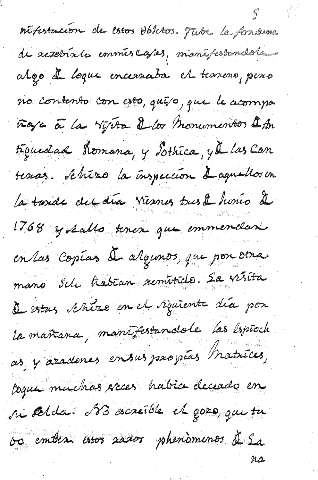 5
nifestacion de estos Objetos. Tube la fortuna
de recebirle en mi casa, manifestandole
algo de lo que encerraba el terreno, pero
no contento con esto, quiso, que le acompa
ñase à la visita de los Monumentos de An
tiguedad Romana, y Gothica, y de las Can
teras. Se hizo la inspeccion de aquellos en
la tarde del dia viernes tres de Junio de
1768 y hallo tener que emmendar
en las Copias de algunos, que por otra
mano se le habian remitido. La visita
de estas se hizo en el siguiente dia por
la mañana, manifestandole las
as, y en sus propias Matrices,
loque muchas veces habia deceado en
su Celda. No es creible el gozo, que tu
bo en ver estos raros phenòmenos de La
na